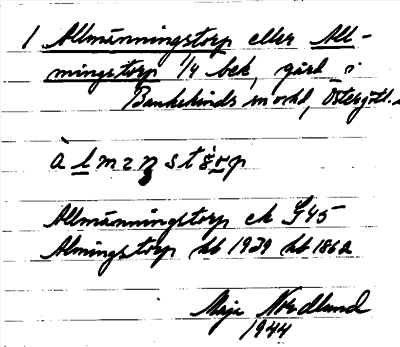 1 Allmänningstorp eller All-
mingstorp 1/4 bek, gård i
Bankekinds sn och hd, Östergötl.
Allmänningstorp ek G45
Almingstorp kb 1929 kb 1862
Maja Nordlund
1944